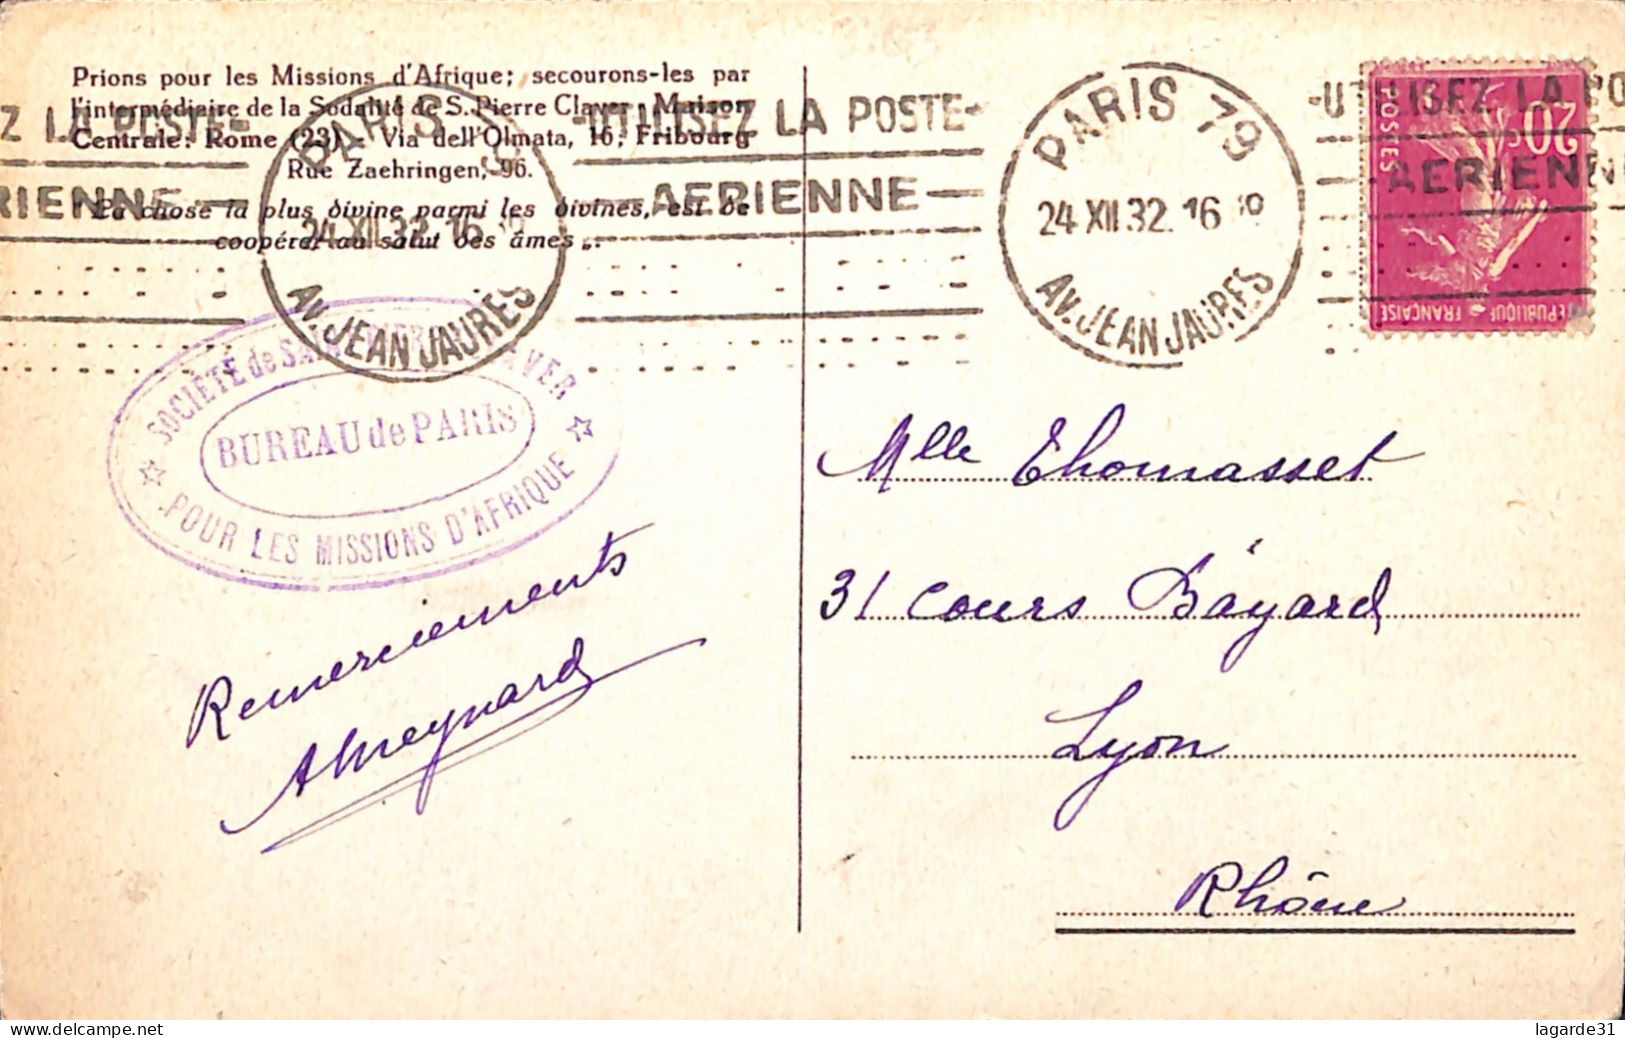 Prions pour les Missions d'Afrique; secourons-les par
l'intermédiaire de la Sodalité de S. Pierre Claver, Maison
Centrale: Rome (23), Via dell'Olmata, 16; Fribourg
Rue Zaehringen, 96.
La chose la plus divine parmi les divines, est de
coopérer au salut des âmes
Z LA POSTE-
RIENNE-
PARIS
24 XII 32. 16
AV. JEAN JAURES
-UTILISEZ LA POSTE-
-AERIENNE-
PARIS 79
24 XII 32. 16 10
AV. JEAN JAURES
-UTILISEZ LA PO
AERIENN
20c
POSTES
REPUBLIQUE FRANÇAISE
SOCIÉTÉ de SAINT PIERRE CLAVER
BUREAU de PARIS
POUR LES MISSIONS D'AFRIQUE
Remerciements
A Meynard
Mlle Thomasset
31 Cours Bayard
Lyon
Rhône
delcampe.net
lagarde31